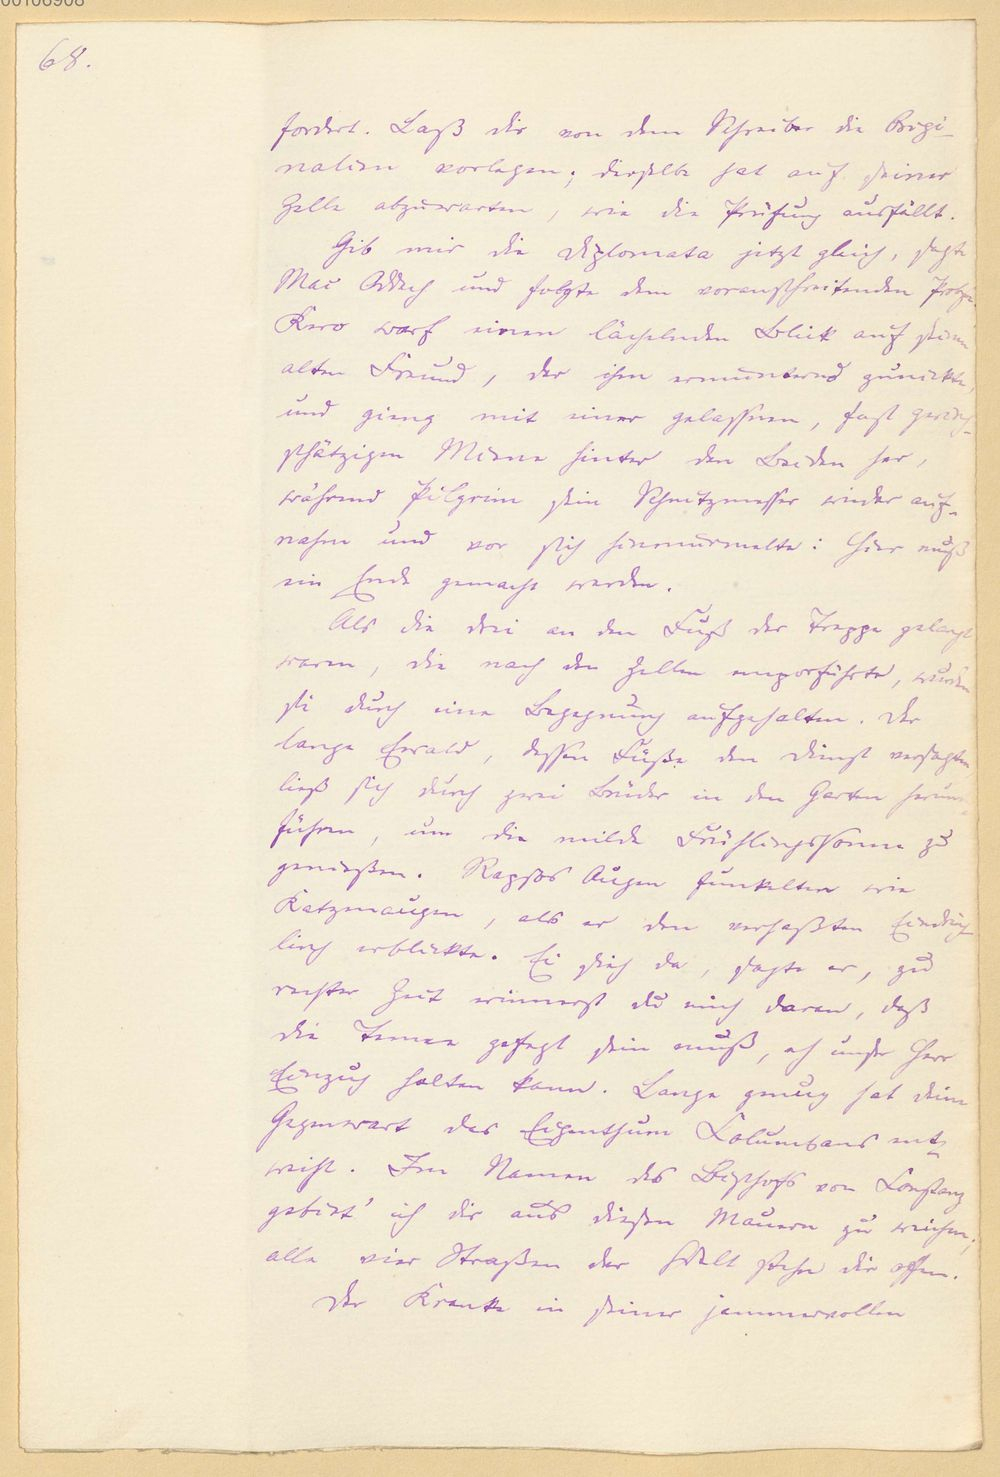 00106908
68.
fordert. Laß dir von dem Schreiber die Origi-
nalien vorlegen; derselbe hat auf seiner
Zelle abzuwarten, wie die Prüfung ausfällt.
Gib mir die Diplomata jetzt gleich, sagte
Mac und folgte dem voranschreitenden
Kero warf einen lächelnden Blick auf seinen
alten Freund, der ihm ermunternd zunickte,
und gieng mit einer gelassnen, fast gering-
schätzigen Miene hinter den Beiden her,
während Pilgrim sein Schnitzmesser wieder auf-
nahm und vor sich hinmurmelte: Hier muß
ein Ende gemacht werden.
Als die drei an den Fuß der Treppe gelangt
waren, die nach den Zellen emporführte, wurden
sie durch eine Begegnung aufgehalten. Der
lange Ewald, dessen Füße den Dienst versagten,
ließ sich durch zwei Brüder in den Garten herun-
führen, um die milde Frühlingssonne zu
genießen. Augen funkelten wie
Katzenaugen, als er den verhaßten Eindring-
ling erblickte. Ei sieh da, sagte er, zu
rechter Zeit erinnerst du mich daran, daß
die Tenne gefegt sein muß, eh unser Herr
Einzug halten kann. Lange genug hat deine
Gegenwart das Eigenthum Columbans ent-
weiht. Im Namen des Bischofs von Constanz
gebiet' ich dir aus diesen Mauern zu weichen;
alle vier Straßen der Welt stehn dir offen.
Der Kranke in seiner jammervollen